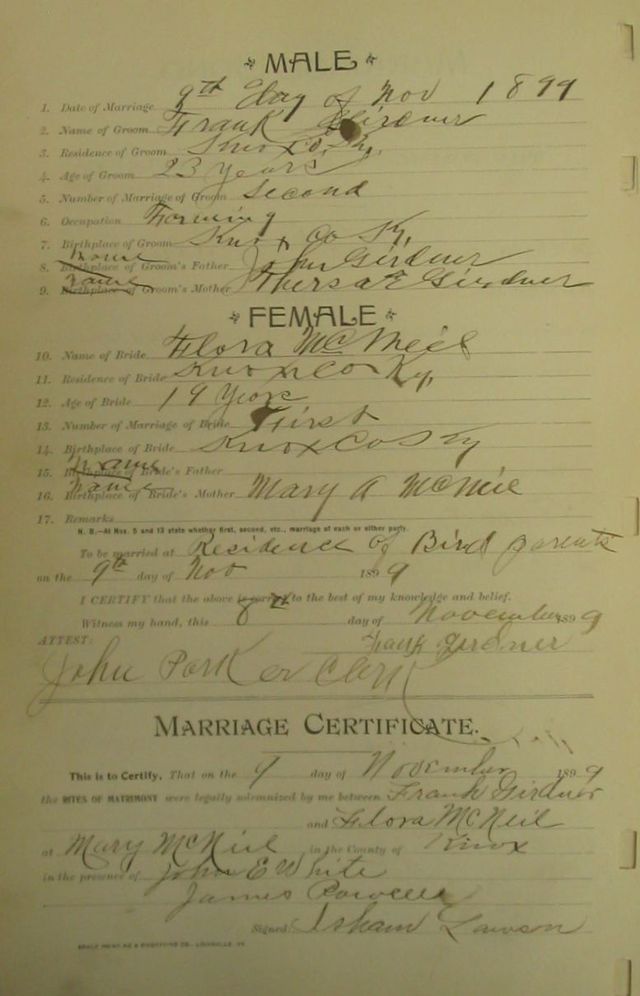 MALE
1. Date of Marriage 9th Day of Nov 1899
2. Name of Groom Frank Girdner
3. Residence of Groom Knox Co, Ky,
4. Age of Groom 23 years
5. Number of Marriage of Groom Second
6. Occupation Farming
7. Birthplace of Groom Knox Co Ky,
name
8. Birthplace of Groom's Father John Girdner
name
9. Birthplace of Groom's Mother Girdner
FEMALE
10. Name of Bride Flora McNeil
11. Residence of Bride Knox Co Ky,
12. Age of Bride 19 Years
13. Number of Marriage of Bride First
14. Birthplace of Bride Knox Co Ky
name
15. Birthplace of Bride's Father
name
16. Birthplace of Bride's Mother Mary A McNeil
17. Remarks
N. B.—At Nos. 5 and 13 state whether first, second, etc., marriage of each or either party.
To be married at Residence of Bird parents
on the 9th day of Nov 1899
I CERTIFY that the above is correct to the best of my knowledge and belief.
Witness my hand, this 8th day of November 1899
ATTEST: Frank Girdner
John Parker Clerk
MARRIAGE CERTIFICATE.
This is to Certify, That on the 9 day of November 1899
the RITES OF MATRIMONY were legally solemnized by me between Frank Girdner
and Flora McNeil
at Mary McNeil in the County of Knox
in the presence of John E White
James Powell
Signed: Isham Lawson